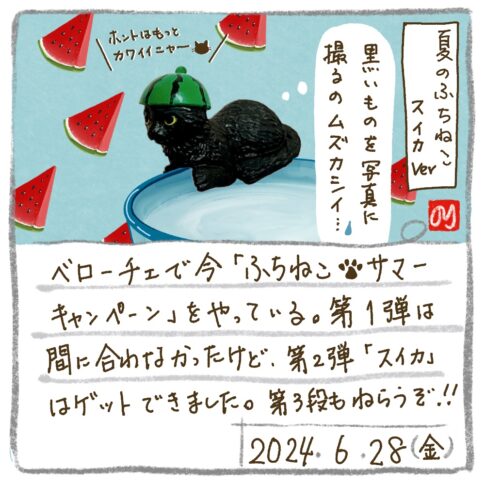 夏のふちねこ
スイカ Ver
黒いものを写真に
撮るのムズカシイ…
ホントはもっと
カワイイニャー
ベローチェで今「ふちねこ🐾サマー
キャンペーン」をやっている。第1弾は
間に合わなかったけど、第2弾「スイカ」
はゲットできました。第3段もねらうぞ!!
2024.6.28(金)